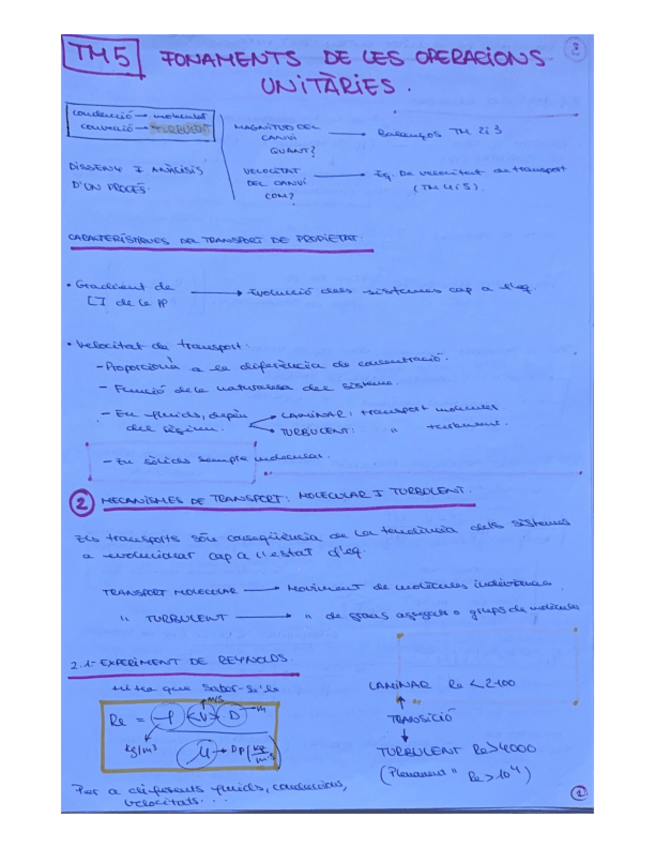 TM5 FONAMENTS DE LES OPERACIONS 3
UNITÀRIES.
conducció → molecular
convecció → TURBULENT
DISSENY I ANÀLISIS
D'UN PROCÉS.
MAGNITUD DEL
CANVI
QUANT?
→ Balanços TM 2 i 3
VELOCITAT
DEL CANVI
COM?
→ Eq. De velocitat de transport
(TM 4 i 5).
CARACTERÍSTIQUES DEL TRANSPORT DE PROPIETAT:
• Gradient de → Evolució dels sistemes cap a l'eq.
[ ] de la P
• Velocitat de transport:
- Proporcional a la diferència de concentració.
- Funció de la naturalesa del sistema.
- En fluids, depèn → LAMINAR: transport molecular
del règim. → TURBULENT: " turbulent.
- En sòlids sempre molecular.
2 MECANISMES DE TRANSPORT: MOLECULAR I TURBULENT.
Els transports són conseqüència de la tendència dels sistemes
a evolucionar cap a l'estat d'eq.
TRANSPORT MOLECULAR → Moviment de molècules individuals.
" TURBULENT → " de grans agregats o grups de molècules
2.1- EXPERIMENT DE REYNOLDS.
que saber-se'la
m/s
Re = ρ <v> D → m
kg/m³ μ → (kg/m·s)
LAMINAR Re < 2100
TRANSICIÓ
TURBULENT Re > 4000
(Plenament " Re > 10⁴)
Per a diferents fluids, conduccions,
velocitats...
1